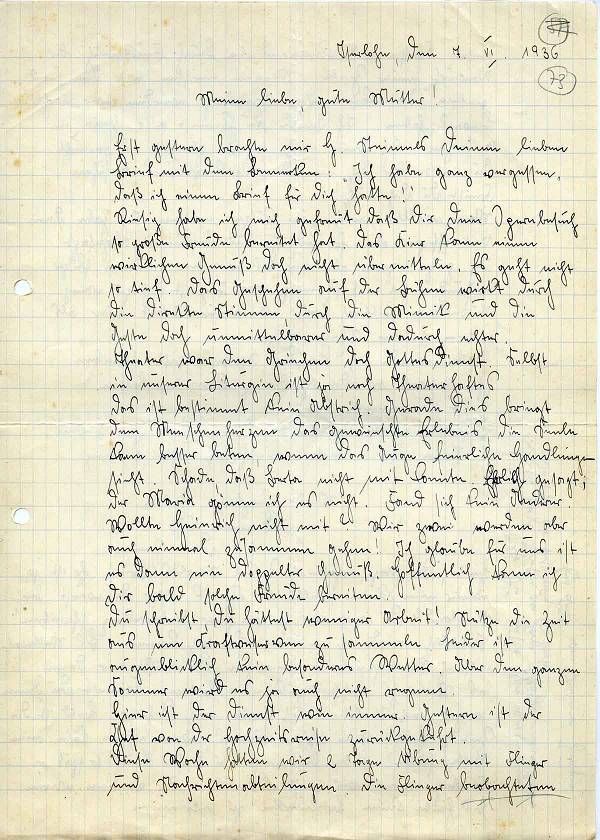 57
73
Iserlohn, den 7. VI. 1936
Meine liebe, gute Mutter!
Erst gestern brachte mir H. Steimels Deinen lieben
Brief mit dem Bemerken: "Ich habe ganz vergessen,
daß ich einen Brief für Dich hatte!"
Riesig habe ich mich gefreut daß Dir Dein Opernbesuch
so große Freude bereitet hat. Das Kino kann einen
wirklichen Genuß doch nicht übermitteln. Es geht nicht
so tief. Das Geschehen auf der Bühne wirkt durch
die direkten Stimmen, durch die Mimik und die
Geste doch unmittelbarer und dadurch echter.
Theater war den Griechen doch Gottesdienst. Selbst
in unserer Liturgie ist ja noch Theaterhaftes
Das ist bestimmt kein Abstrich. Gerade dies bringt
dem Menschenherzen das gewünschte Erlebnis, die Seele
kann besser beten, wenn das Auge feierliche Handlungen
sieht. Schade, daß Herta nicht mit konnte. Ehrlich gesagt,
der Maria gönne ich es nicht. Fand sich kein Anderer.
Wollte Heinrich nicht mit? Wir zwei werden aber
auch einmal zusammen gehen! Ich glaube für uns ist
es dann ein doppelter Genuß. Hoffentlich kann ich
Dir bald solche Freude bereiten.
Du schreibst, Du hättest weniger Arbeit! Nütze die Zeit
aus um Kraftreserven zu sammeln. Leider ist
augenblicklich kein besonderes Wetter. Aber den ganzen
Sommer wird es ja auch nicht regnen.
Hier ist der Dienst wie immer. Gestern ist der
Chef von der Hochzeitsreise zurückgekehrt.
Diese Woche hatten wir 2 Tage Übung mit Flieger
und Nachrichtenabteilungen. Die Flieger beobachteten